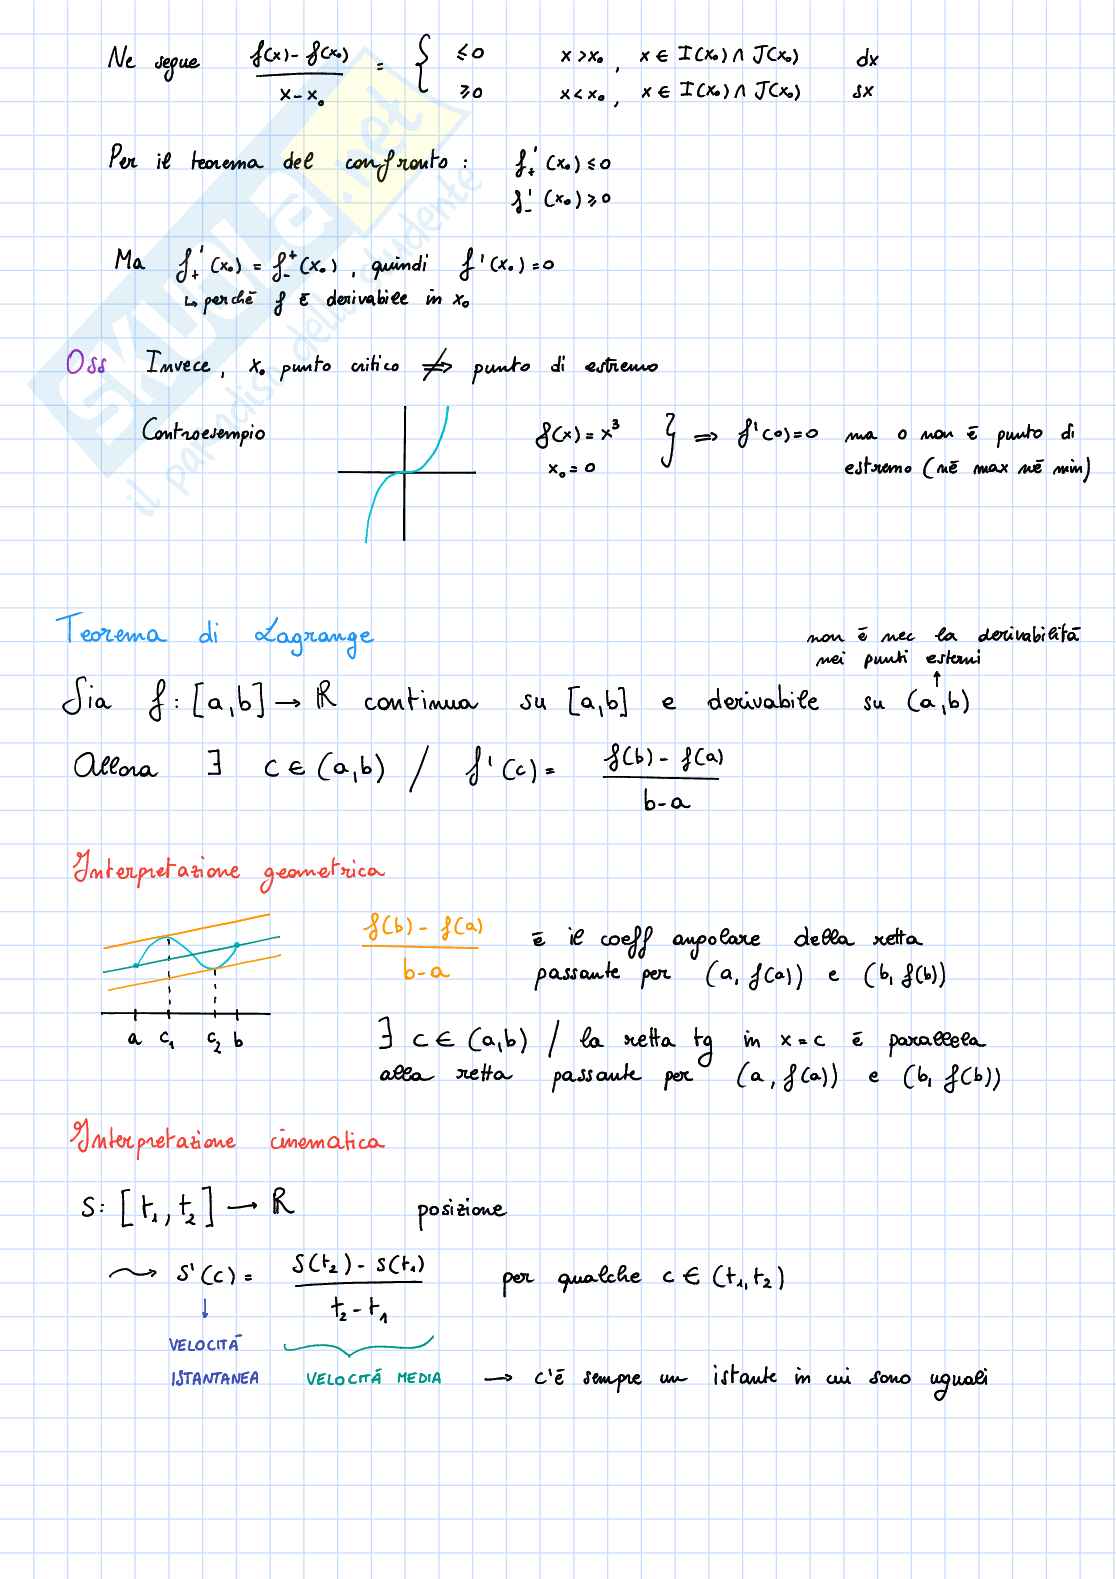 Ne segue f(x) - f(x₀) / x - x₀ = { ≤0 x > x₀, x ∈ I(x₀) ∧ J(x₀) dx
≥0 x < x₀, x ∈ I(x₀) ∧ J(x₀) sx
Per il teorema del confronto : f₊'(x₀) ≤ 0
f₋'(x₀) ≥ 0
Ma f₊'(x₀) = f₋⁺(x₀), quindi f'(x₀) = 0
↳ perchē f ē derivabile in x₀
Oss Invece, x₀ punto critico ⇏ punto di estremo
Controesempio f(x) = x³ } ⇒ f'(0) = 0 ma 0 non ē punto di
x₀ = 0 estremo (nē max nē min)
Teorema di Lagrange
non ē nec la derivabilitā
nei punti esterni
↑
Sia f : [a,b] → ℝ continua su [a,b] e derivabile su (a,b)
Allora ∃ c ∈ (a,b) / f'(c) = f(b) - f(a) / b - a
Interpretazione geometrica
a c₁ c₂ b
f(b) - f(a) / b - a ē il coeff angolare della retta
passante per (a, f(a)) e (b, f(b))
∃ c ∈ (a,b) / la retta tg in x = c ē parallela
alla retta passante per (a, f(a)) e (b, f(b))
Interpretazione cinematica
S: [t₁, t₂] → ℝ posizione
⤳ S'(c) = S(t₂) - S(t₁) / t₂ - t₁ per qualche c ∈ (t₁, t₂)
↓
VELOCITĀ
ISTANTANEA VELOCITĀ MEDIA → c'ē sempre un istante in cui sono uguali
SKUOLA.net
il paradiso dello studente